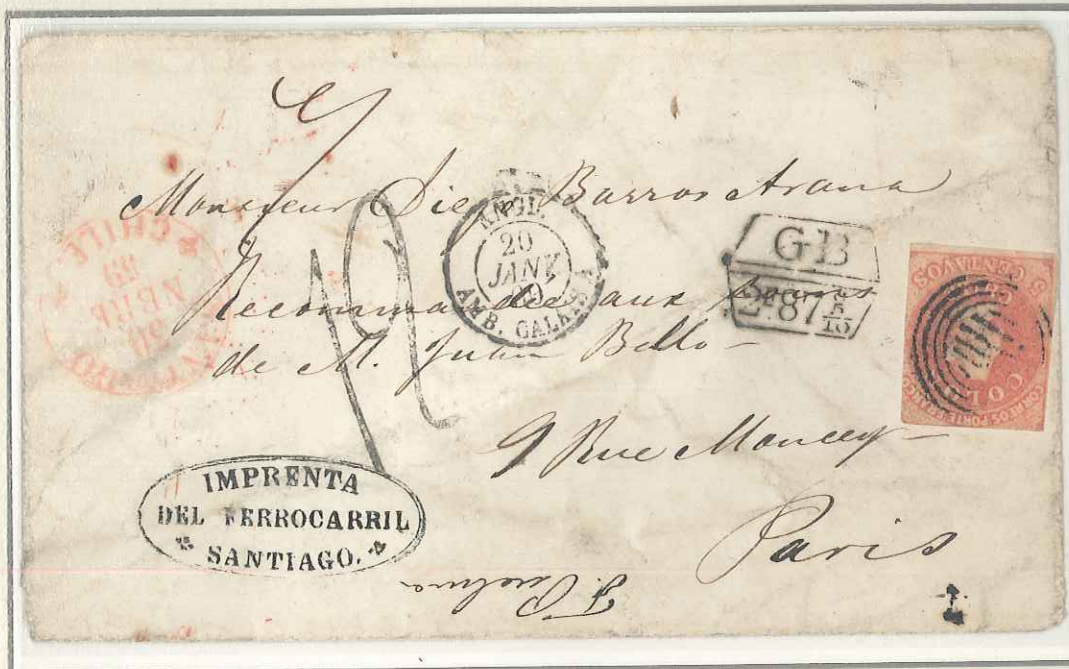 Monsieur Diego Barros Arana
Recommandée aux
de M. Juan Bello
9 Rue Moncey
Paris
12
ANGL.
20
JANV
AMB. CALAIS
GB
2F87 5/10
CHILE
30
NBRE
59
SANTIAGO
COLON
CENTAVOS
CORREOS PORTE FRANCO
IMPRENTA
DEL FERROCARRIL
SANTIAGO.